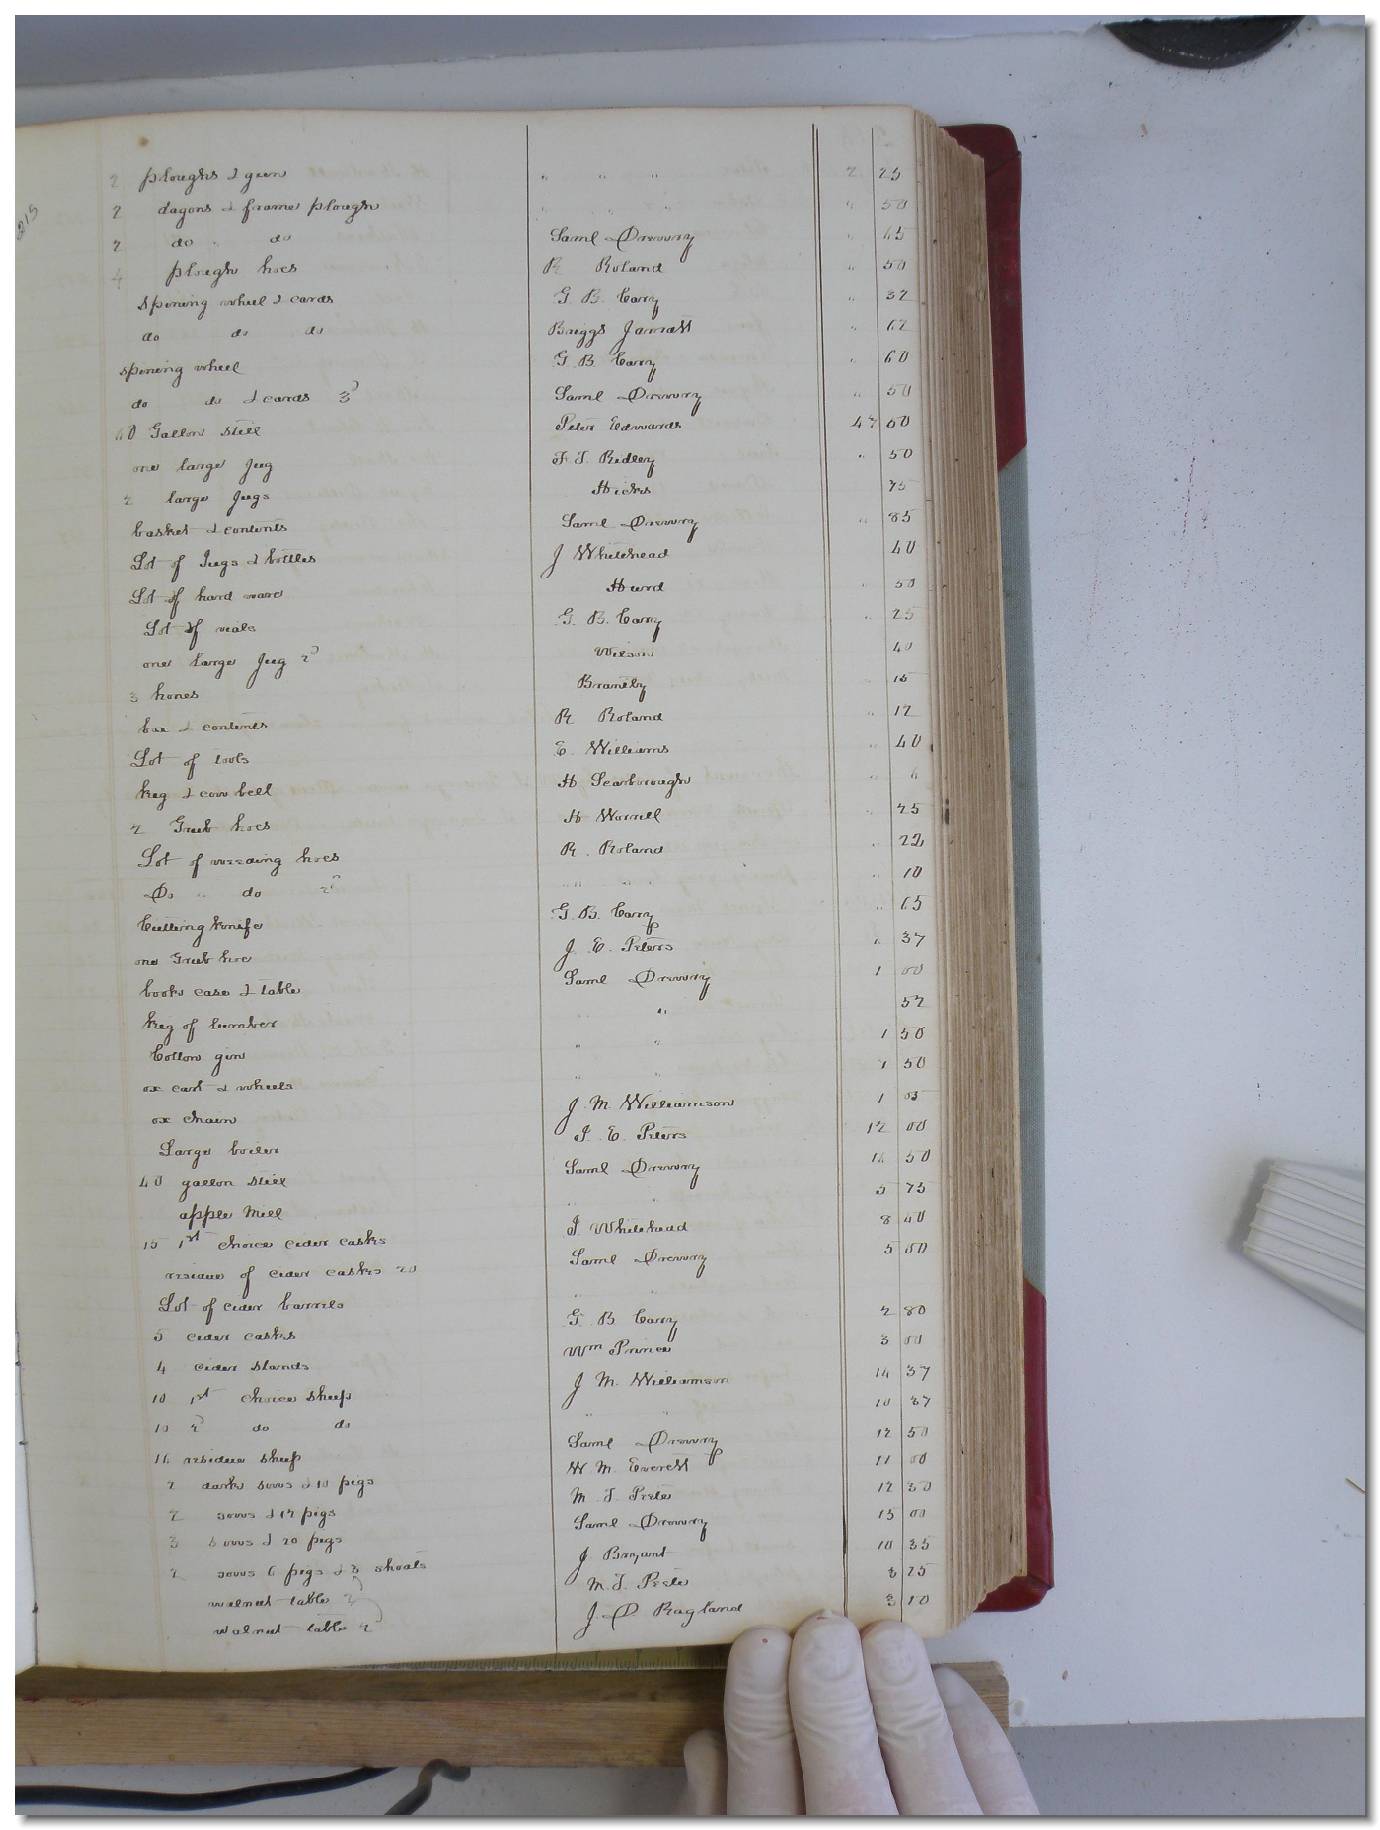 215
2 ploughs & geer " " " 2 25
2 dagons & frame plough " " " " 50
2 do " do Saml Drewry " 65
4 plough hoes R Roland " 50
spining wheel & cards G. B. Cary " 32
do do do Briggs Jarratt " 62
spining wheel G. B. Cary " 60
do do & cards 3d Saml Drewry " 50
60 Gallon still Peter Edwards 47 50
one large Jug F. T. Ridley " 50
2 large Jugs Hicks 75
basket & contents Saml Drewry " 85
Lot of Jugs & bottles J Whitehead 40
Lot of hard ware Hurd " 50
Lot of vials G. B. Cary " 25
one large Jug 2d Wilson 40
3 hones Brantly " 15
box & contents R Roland " 12
Lot of tools E. Williams " 40
keg & cow bell H Scarborough " 6
2 Grub hoes H Worrell " 25
Lot of weeding hoes R. Roland " 22
Do " do 2d " " " " 10
Cutting knife G. B. Cary " 65
one Grub hoe J. E. Peters " 37
book case & table Saml Drewry 1 00
keg of lumber " 52
Cotton gin " " 1 50
ox cart & wheels " " 7 50
ox chain J. M. Williamson 1 05
Large boiler J. E. Peters 12 00
40 gallon still Saml Drewry 16 50
apple Mill " " 5 75
15 1st choice cider casks J. Whitehead 8 40
residue of cider casks 20 Saml Drewry 5 00
Lot of cider barrels " "
5 cider casks G. B Cary 2 80
4 cider stands Wm Prince 3 00
10 1st choice sheep J M. Williamson 14 37
10 2d do do " " 10 37
16 residue sheep Saml Drewry 12 50
2 dark sows & 10 pigs W M. Everett 11 00
2 sows & 17 pigs M. T. Peete 12 50
3 sows & 20 pigs Saml Drewry 15 00
2 sows 6 pigs & 3 shoats J Bryant 10 35
walnut table M. T. Peete 8 25
walnut table 2d J. D Ragland 3 10